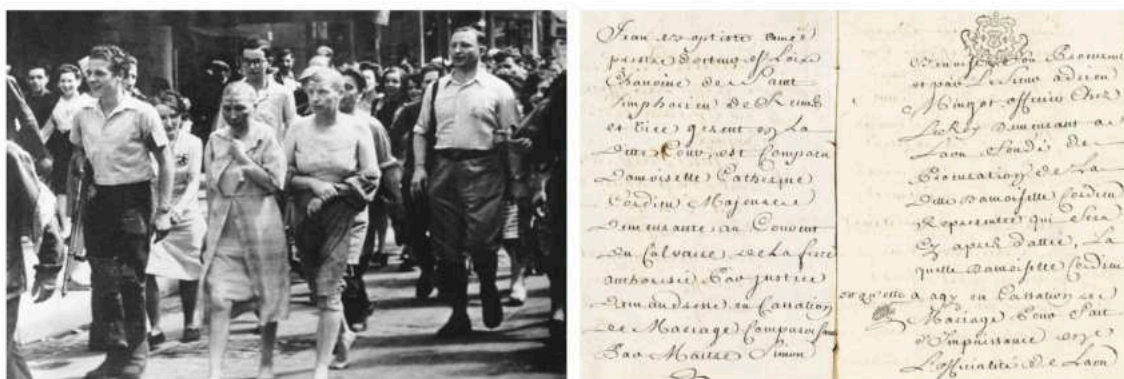 Jean Baptiste
prestre docteur
Chanoine de Saint
Simphorien de Reims
et Vice gerent en La
ditte Cour, est Comparu
Damoiselle Catherine
Cordieu Majeure
demeurante au Couvent
du Calvaire de La fere
authorisée Par justice
demanderesse en Cassation
de Mariage
Par Maitre Simon
Procureur
et par Le Sieur
officier Chez
Le Roy demeurant a
Laon fondé de
Procuration de La
ditte Damoiselle Cordieu
qui sera
Cy apres dattée, La
quelle Damoiselle Cordieu
en Cassation de
Mariage Pour fait
d'Impuissance en
L'officialité de Laon